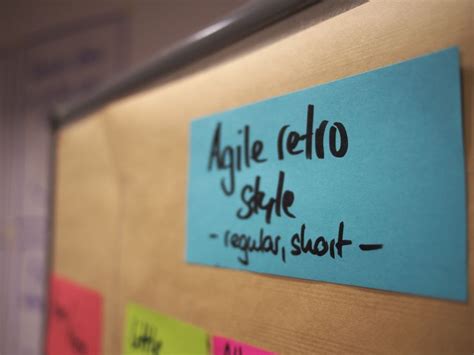 Agile retro
style
- regular, short -
Little